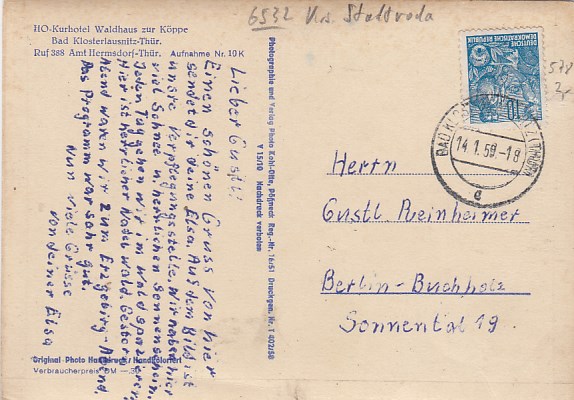 6532 Krs. Stadtroda
HO-Kurhotel Waldhaus zur Köppe
Bad Klosterlausnitz-Thür.
Ruf 388 Amt Hermsdorf-Thür. Aufnahme Nr. 10 K
Lieber Gustl!
Einen schönen Gruss von hier
sendet dir deine Elsa. Auf dem Bild ist
unsre Verpflegungsstelle. Wir haben hier
viel Schnee u. herrlichen Sonnenschein.
Jeden Tag gehen wir im Wald spazieren
Hier ist herrlicher Nadelwald. Gestern
Abend waren wir zum Erzgebirg-Abend,
das Programm war sehr gut.
Nun viele Grüsse
von deiner Elsa
Original-Photo Handdruck/Handkoloriert
Verbraucherpreis DM
Photographie und Verlag Photo Kahl-Otte, Pößneck Reg.-Nr. 16/51 Druckgen. Nr. T 602/58
V 15/10 Nachdruck verboten
DEUTSCHE
DEMOKRATISCHE REPUBLIK
10
578
BAD KLOSTERLAUSNITZ
14.1.59.-18
a
Herrn
Gustl Reinheimer
Berlin-Buchholz
Sonnental 19